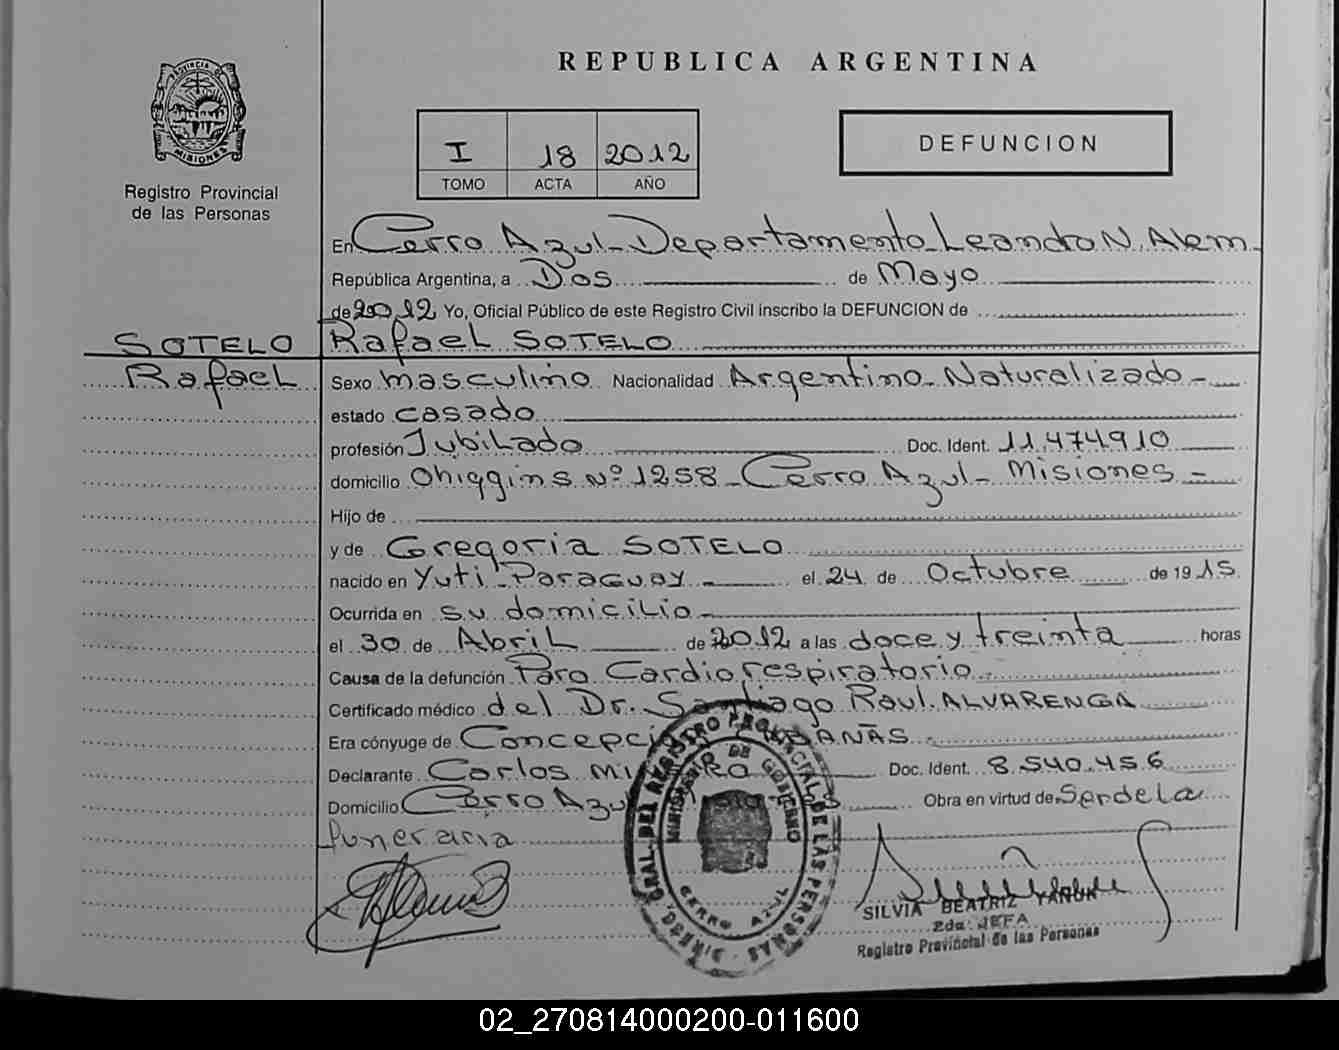 REPUBLICA ARGENTINA
PROVINCIA DE
MISIONES
Registro Provincial
de las Personas
I 18 2012
TOMO ACTA AÑO
DEFUNCION
En Cerro Azul - Departamento Leandro N. Alem -
República Argentina, a Dos de Mayo
de 2012 Yo, Oficial Público de este Registro Civil inscribo la DEFUNCION de
SOTELO Rafael SOTELO
Rafael Sexo masculino Nacionalidad Argentino Naturalizado -
estado casado
profesión Jubilado Doc. Ident. 11.474.910
domicilio Ohiggins Nº 1258 - Cerro Azul - Misiones -
Hijo de
y de Gregoria SOTELO
nacido en Yuti - Paraguay - el 24 de Octubre de 1915
Ocurrida en su domicilio -
el 30 de Abril de 2012 a las doce y treinta horas
Causa de la defunción Paro Cardiorespiratorio -
Certificado médico del Dr. Santiago Raul ALVARENGA
Era cónyuge de Concepción
Declarante Carlos Doc. Ident. 8.540.456
Domicilio Cerro Azul Obra en virtud de Ser de la
funeraria
DIRECC. GRAL. DEL REGISTRO PROVINCIAL DE LAS PERSONAS
MINISTERIO DE GOBIERNO
CERRO AZUL
SILVIA BEATRIZ
2da. JEFA
Registro Provincial de las Personas
02_270814000200-011600